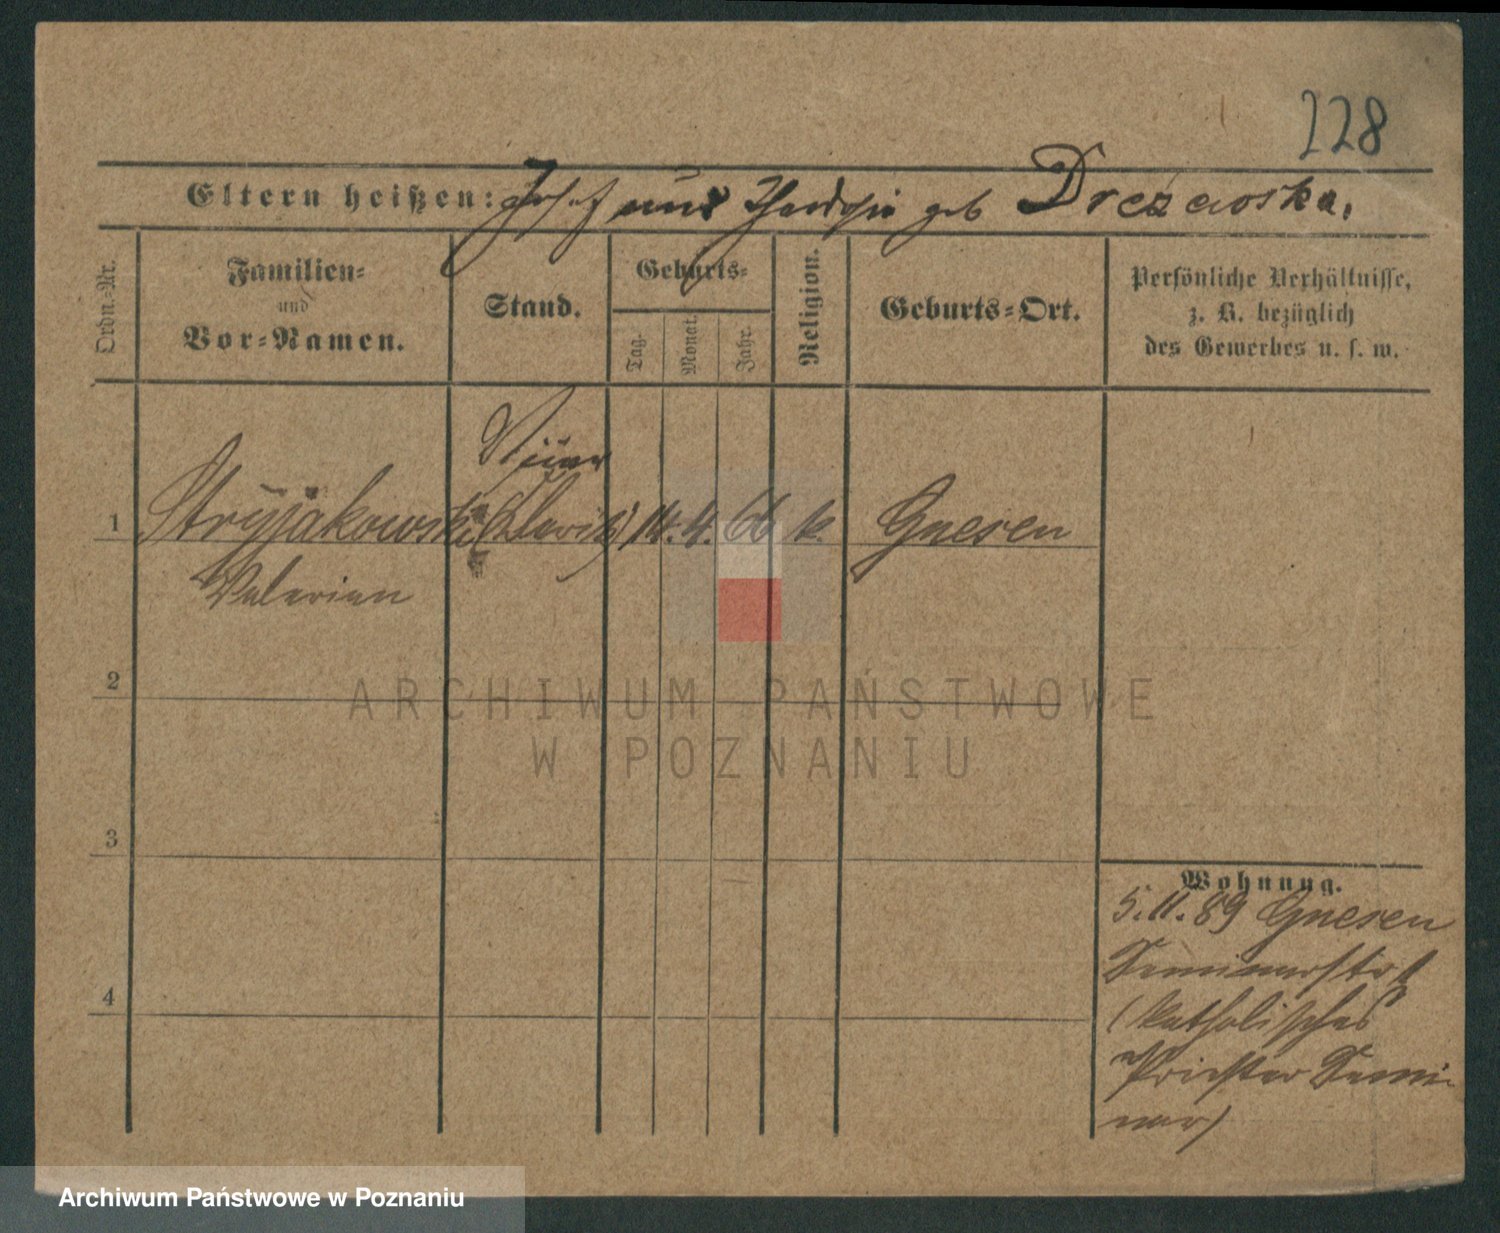 228
Eltern heißen: Josef und geb Drezewska.
Ordn.-Nr.
Familien-
und
Vor-Namen.
Stand.
Geburts-
Tag.
Monat.
Jahr.
Religion.
Geburts-Ort.
Persönliche Verhältnisse,
z. B. bezüglich
des Gewerbes u. s. w.
1 Stryjakowski 14. 4. 66 k. Gnesen
Valerian
2
3
4
Wohnung.
5.11.89 Gnesen
Seminarstr
(katholisches
Priester Semi-
nar)
ARCHIWUM PAŃSTWOWE
W POZNANIU
Archiwum Państwowe w Poznaniu